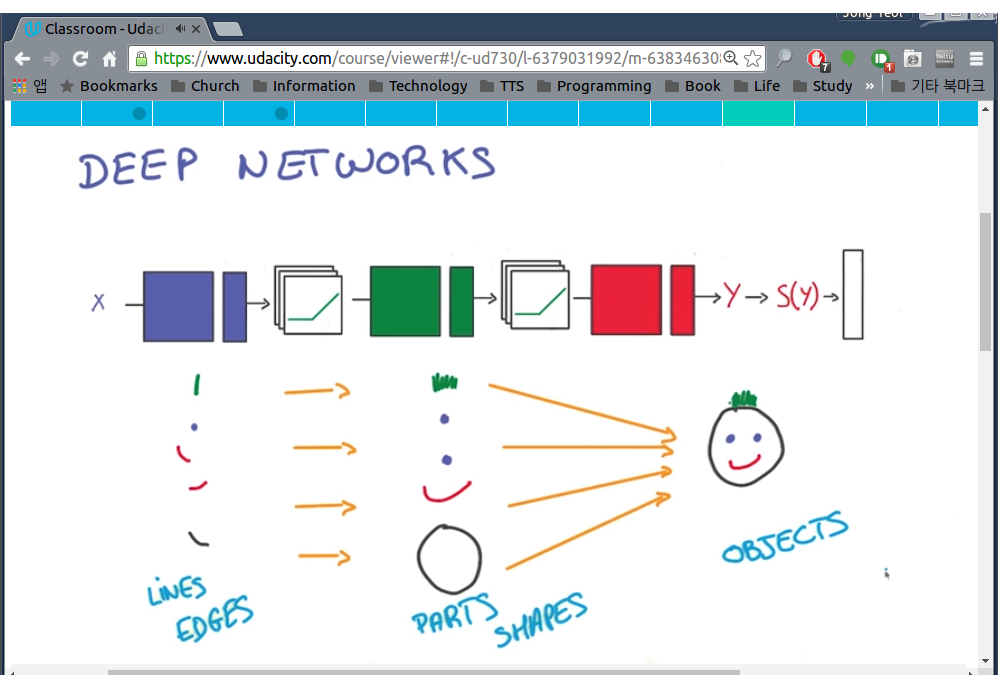 Jong Yeol
Classroom - Udaci
https://www.udacity.com/course/viewer#!/c-ud730/l-6379031992/m-63834630
7
1
앱 Bookmarks Church Information Technology TTS Programming Book Life Study » 기타 북마크
DEEP NETWORKS
X Y S(Y)
LINES
EDGES
PARTS
SHAPES
OBJECTS